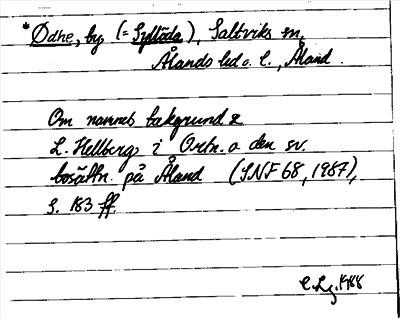 *Ödhe, by (= Syllöda), Saltviks sn,
Ålands hd o. l., Åland.
Om namnets bakgrund se
L. Hellberg i Ortn. o den sv.
bosättn. på Åland (SNF 68, 1987),
s. 183 ff.
C.Lg. 1988